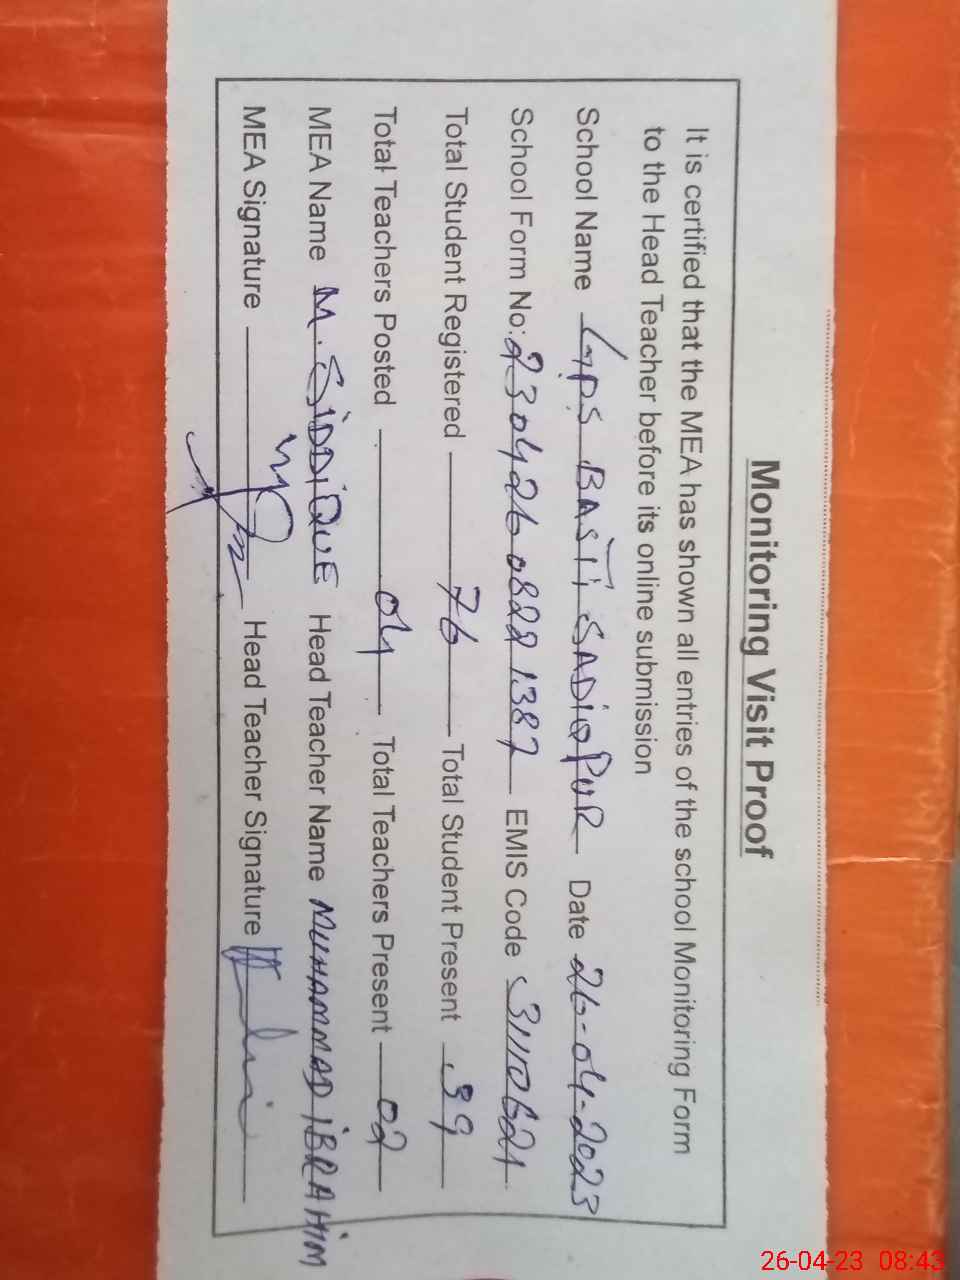 Monitoring Visit Proof
It is certified that the MEA has shown all entries of the school Monitoring Form
to the Head Teacher before its online submission
School Name GPS BASTI SADIQ PUR Date 26-04-2023
School Form No: 230426 0828 1387 EMIS Code 31110621
Total Student Registered 76 Total Student Present 39
Total Teachers Posted 04 Total Teachers Present 02
MEA Name M. SIDDIQUE Head Teacher Name MUHAMMAD IBRAHIM
MEA Signature Head Teacher Signature
26-04-23 08:43